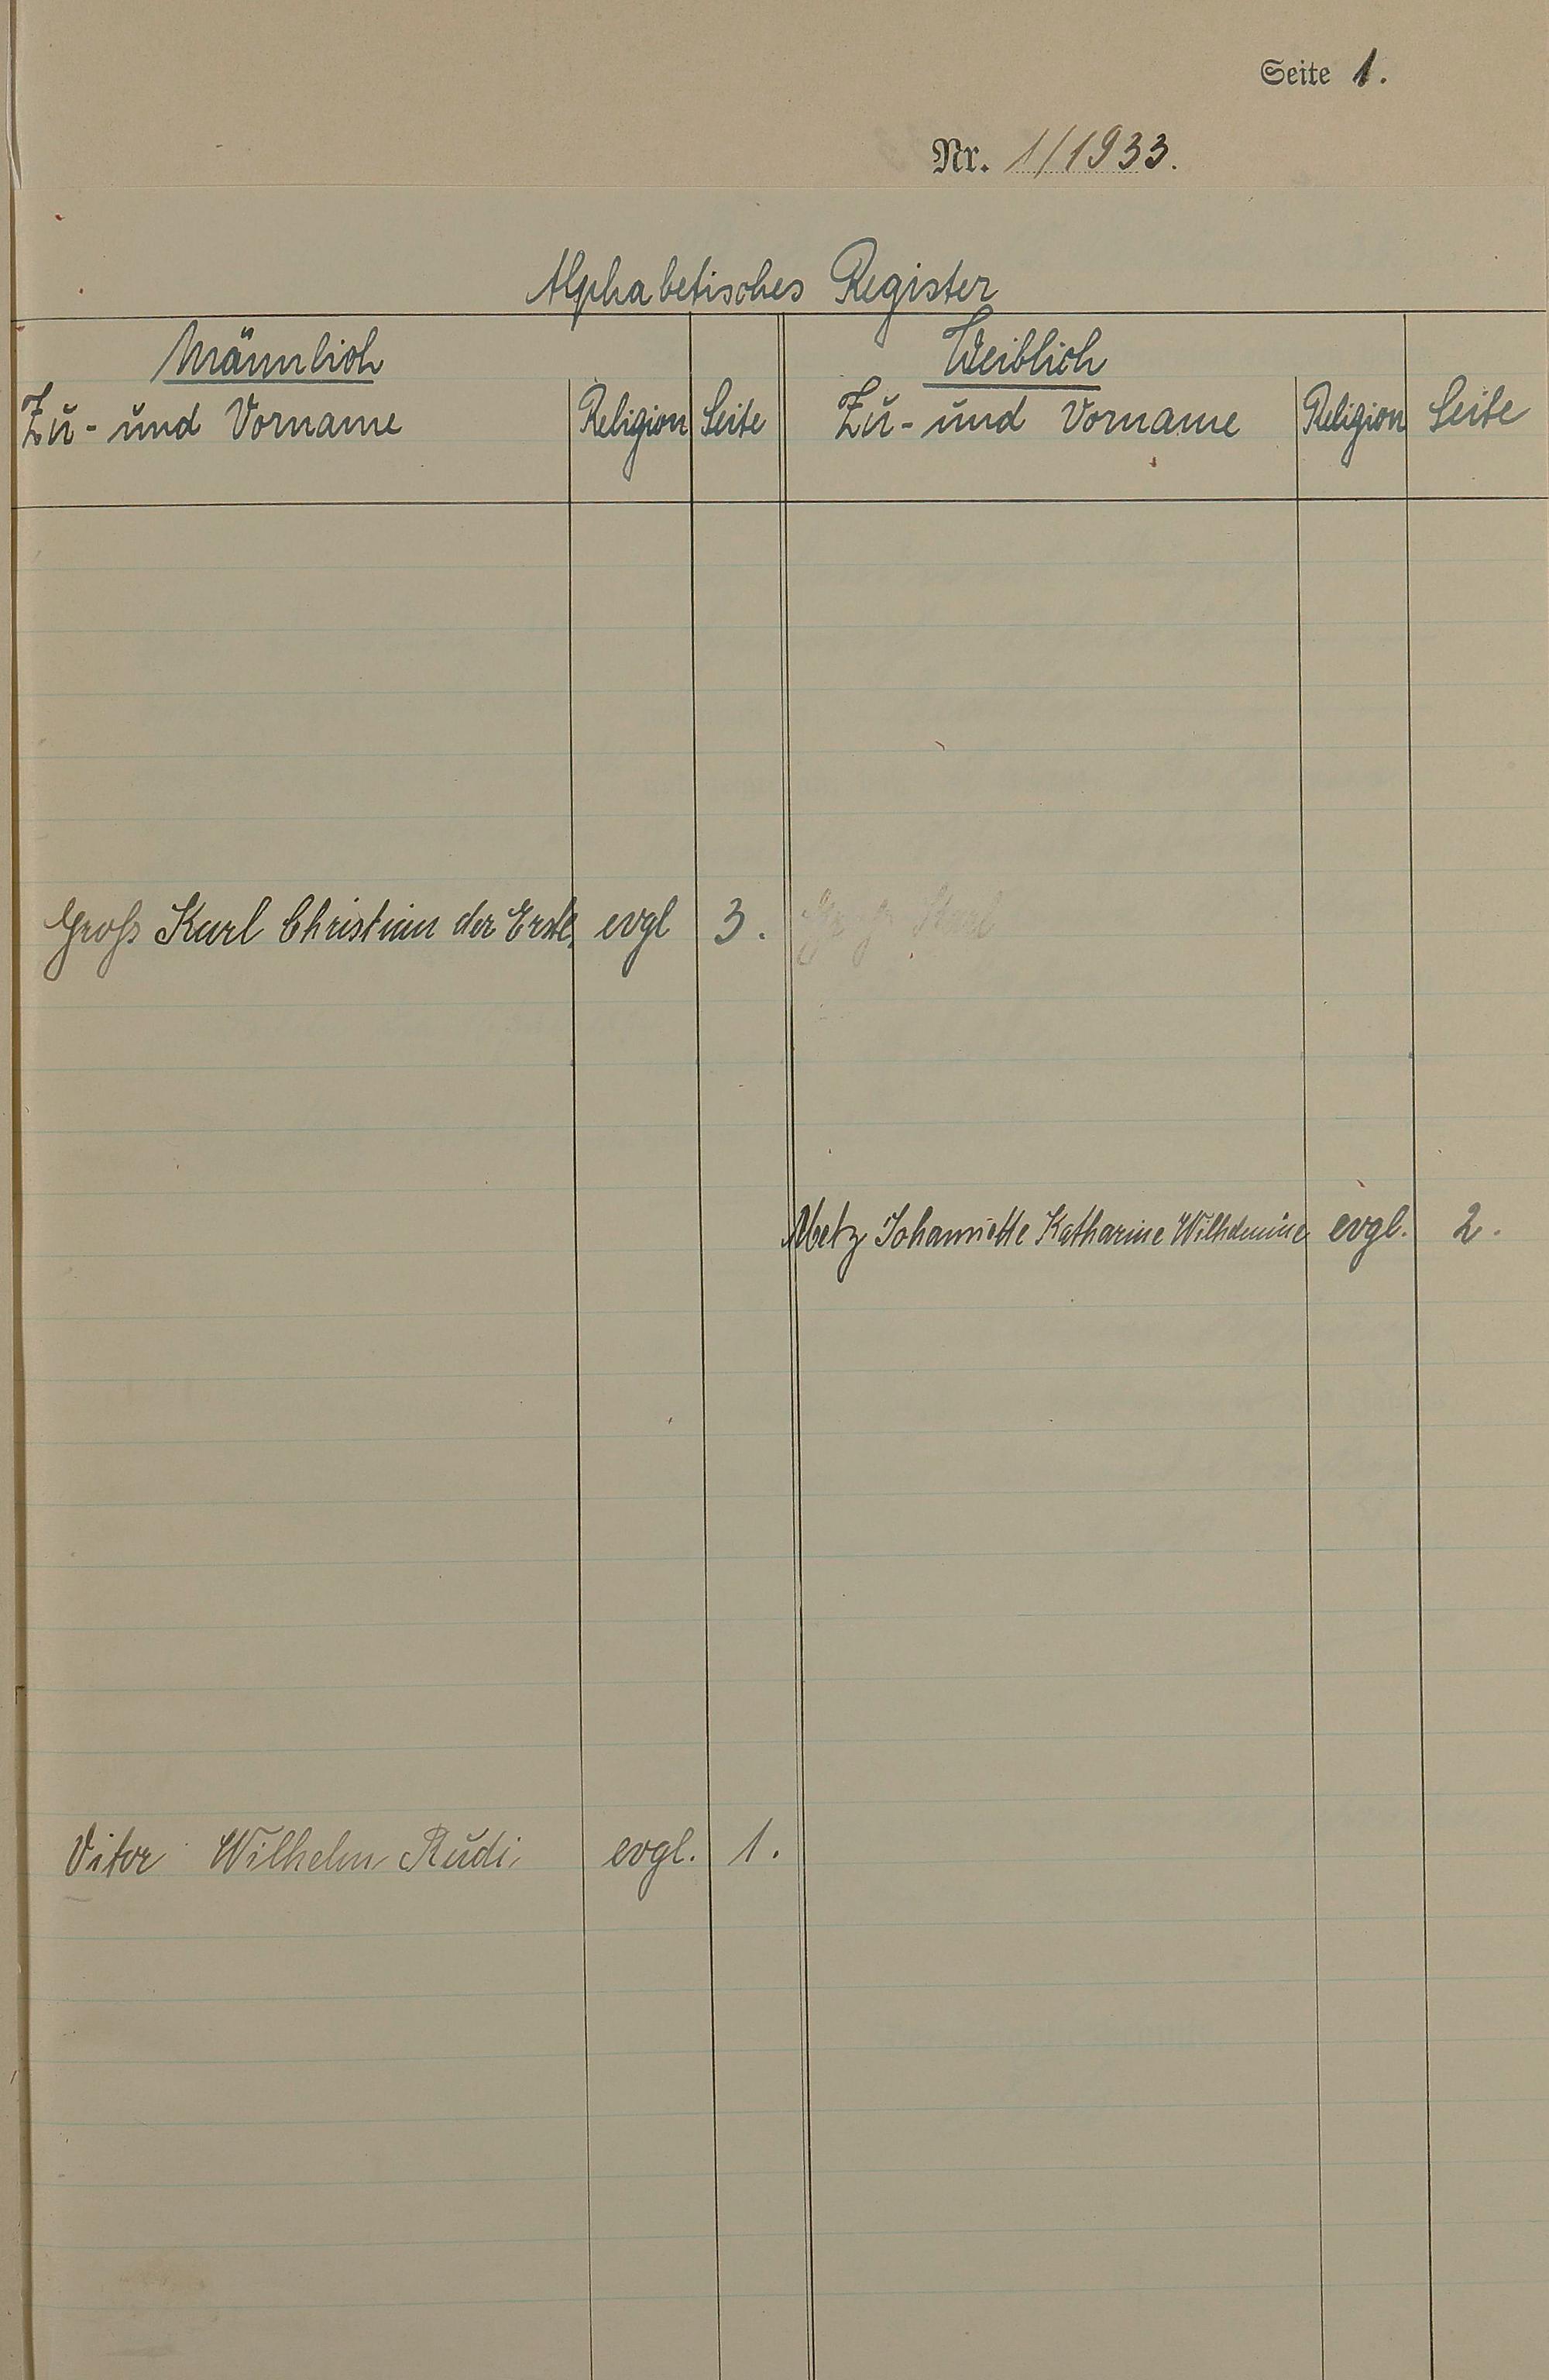 Seite 1.
Nr. 1/1933.
Alphabetisches Register
Männlich Weiblich
Zu- und Vorname Religion Seite Zu- und Vorname Religion Seite
Groß Karl Christian der Erste evgl 3.
Metz Johanniette Katharine Wilhelmine evgl. 2.
Vitor Wilhelm Rudi evgl. 1.